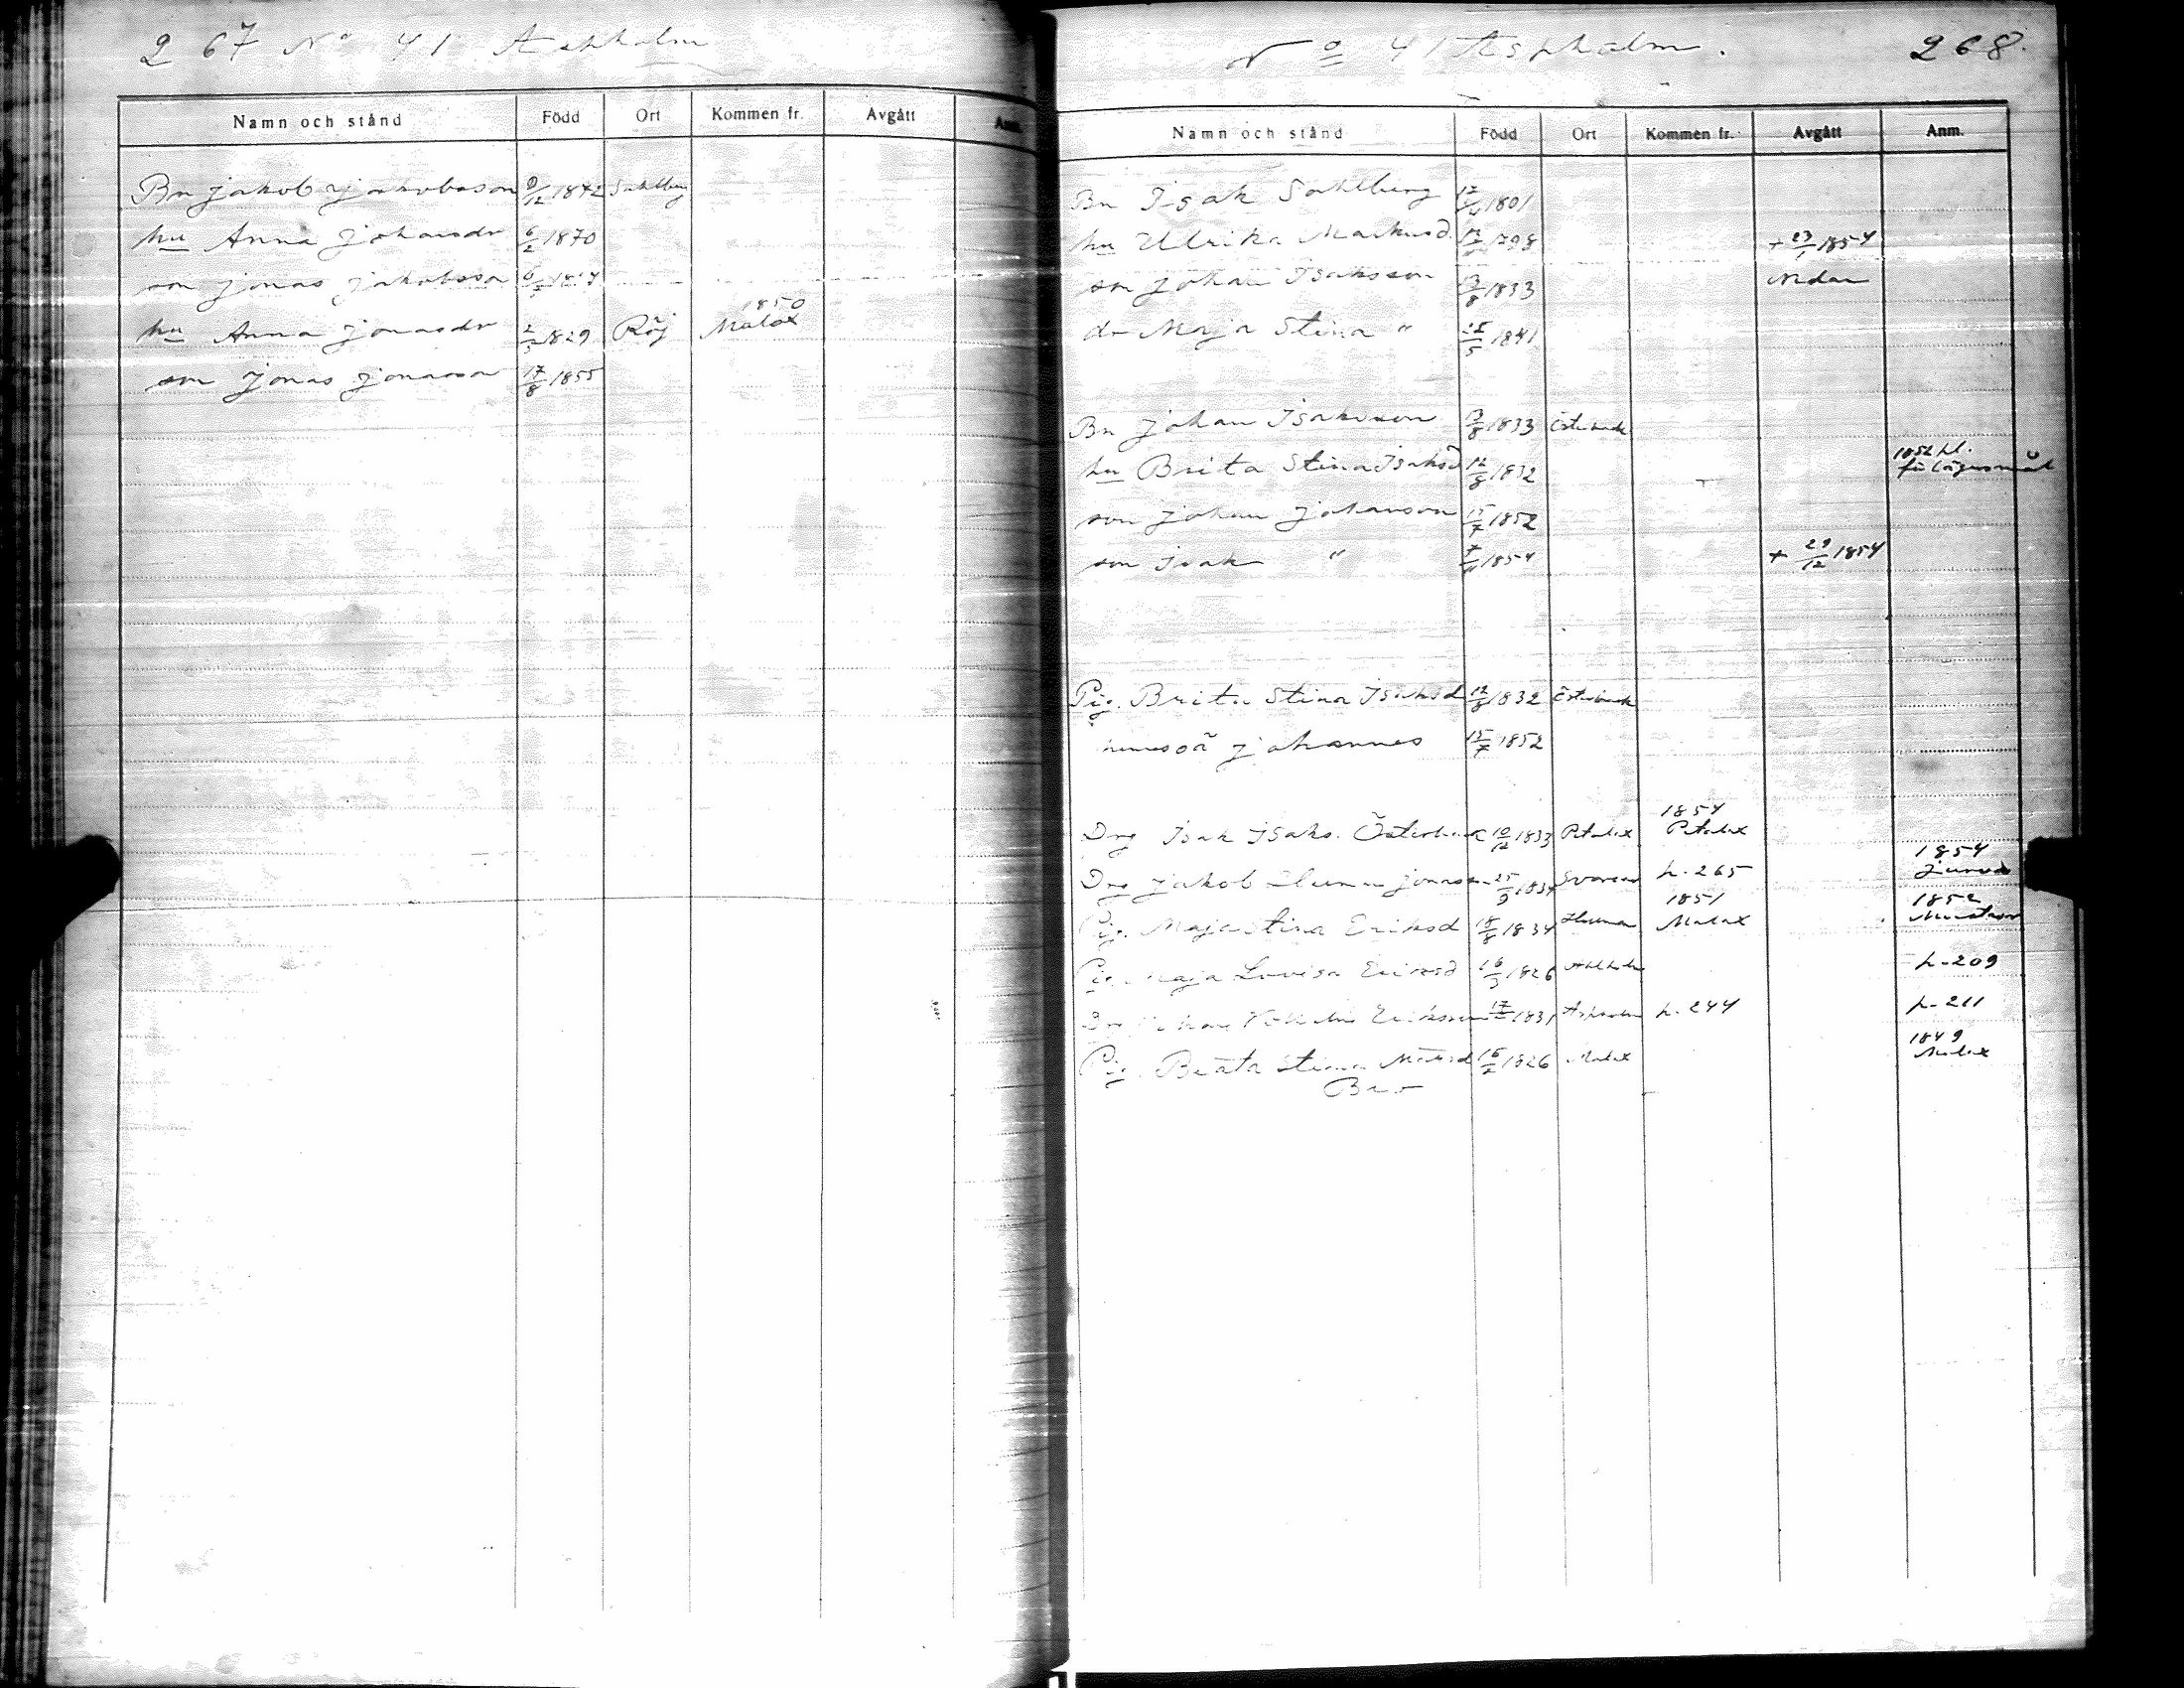 267 No 41 Aspholm
Namn och stånd Född Ort Kommen fr. Avgått Anm.
Bn Jakob Jakobsson 9/12 1842 Sahlberg
hu Anna Johansdr 6/2 1870
son Jonas Jakobsson
1850
hu Anna Jonasdr 1829 Röj Malax
son Jonas Jonasson 17/8 1855
No 41 Aspholm. 268.
Namn och stånd Född Ort Kommen fr. Avgått Anm.
Bn Isak Sahlberg 1801
hu Ulrika Markusd. 1798 + 23/1 1854
son Johan Isaksson 13/8 1833 Nedan
dr Maja Stina " 1841
Bn Johan Isaksson 13/8 1833 Österback
1852 hl.
hu Brita Stina Isaksd 12/8 1832 för lägersmål
son Johan Johansson 15/7 1852
son Isak " 1854 + 29/12 1854
Pig. Brita Stina Isaksd 12/8 1832 Österback
hennes oä Johannes 15/7 1852
1854
Drg Isak Isaks. Österback 10/12 1833 Petalax Petalax
1854
Drg Jakob Jonasson 25/9 h. 265
1851 1852
Pig. Maja Stina Eriksd 18/8 1834 Malax
Pig. Maja Lovisa Eriksd 16/3 1826 h. 209
Johan Vilhelm Eriksson 1831 Aspholm h. 244 h. 211
1849
Pig. Beata Stina Matsd 16/2 1826 Malax Malax